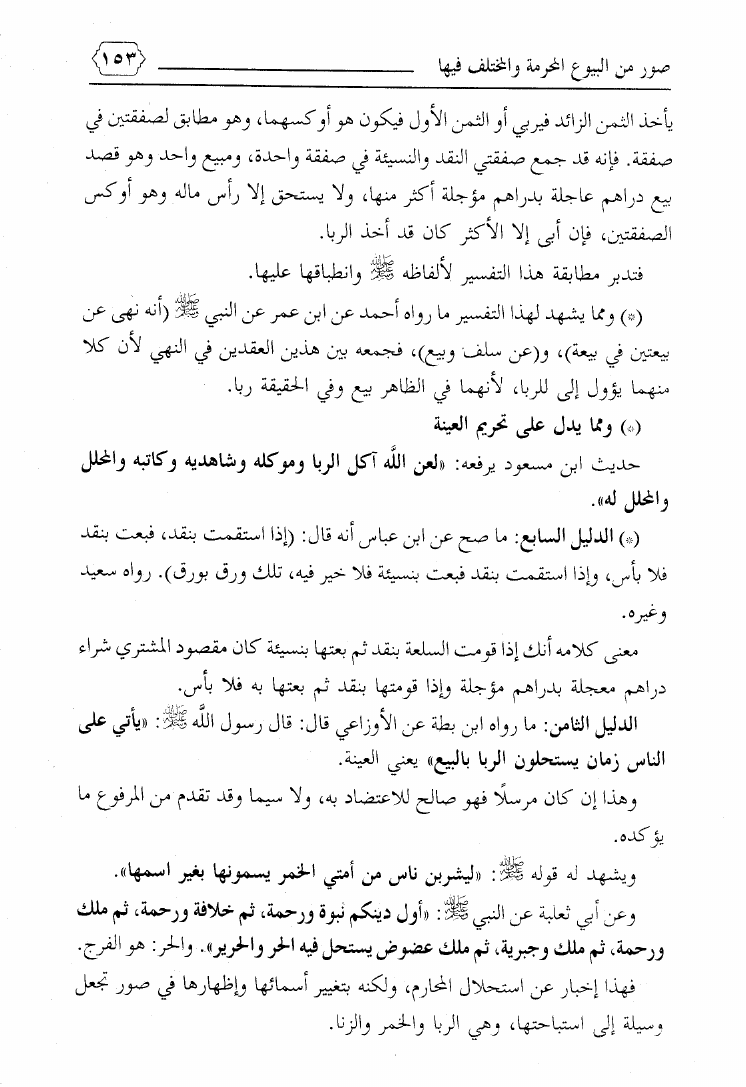 صور من البيوع المحرمة والمختلف فيها ١٥٣
يأخذ الثمن الزائد فيربي أو الثمن الأول فيكون هو أوكسهما، وهو مطابق لصفقتين في
صفقة. فإنه قد جمع صفقتي النقد والنسيئة في صفقة واحدة، ومبيع واحد وهو قصد
بيع دراهم عاجلة بدراهم مؤجلة أكثر منها، ولا يستحق إلا رأس ماله وهو أوكس
الصفقتين، فإن أبى إلا الأكثر كان قد أخذ الربا.
فتدبر مطابقة هذا التفسير لألفاظه ﷺ وانطباقها عليها.
(*) ومما يشهد لهذا التفسير ما رواه أحمد عن ابن عمر عن النبي ﷺ (أنه نهى عن
بيعتين في بيعة)، و(عن سلف وبيع)، فجمعه بين هذين العقدين في النهي لأن كلا
منهما يؤول إلى للربا، لأنهما في الظاهر بيع وفي الحقيقة ربا.
(*) ومما يدل على تحريم العينة
حديث ابن مسعود يرفعه: «لعن اللَّه آكل الربا وموكله وشاهديه وكاتبه والمحلل
والمحلل له».
(*) الدليل السابع: ما صح عن ابن عباس أنه قال: (إذا استقمت بنقد، فبعت بنقد
فلا بأس، وإذا استقمت بنقد فبعت بنسيئة فلا خير فيه، تلك ورق بورق). رواه سعيد
وغيره.
معنى كلامه أنك إذا قومت السلعة بنقد ثم بعتها بنسيئة كان مقصود المشتري شراء
دراهم معجلة بدراهم مؤجلة وإذا قومتها بنقد ثم بعتها به فلا بأس.
الدليل الثامن: ما رواه ابن بطة عن الأوزاعي قال: قال رسول اللَّه ﷺ: «يأتي على
الناس زمان يستحلون الربا بالبيع» يعني العينة.
وهذا إن كان مرسلًا فهو صالح للاعتضاد به، ولا سيما وقد تقدم من المرفوع ما
يؤكده.
ويشهد له قوله ﷺ: «ليشربن ناس من أمتي الخمر يسمونها بغير اسمها».
وعن أبي ثعلبة عن النبي ﷺ: «أول دينكم نبوة ورحمة، ثم خلافة ورحمة، ثم ملك
ورحمة، ثم ملك وجبرية، ثم ملك عضوض يستحل فيه الحر والحرير». والحر: هو الفرج.
فهذا إخبار عن استحلال المحارم، ولكنه بتغيير أسمائها وإظهارها في صور تجعل
وسيلة إلى استباحتها، وهي الربا والخمر والزنا.